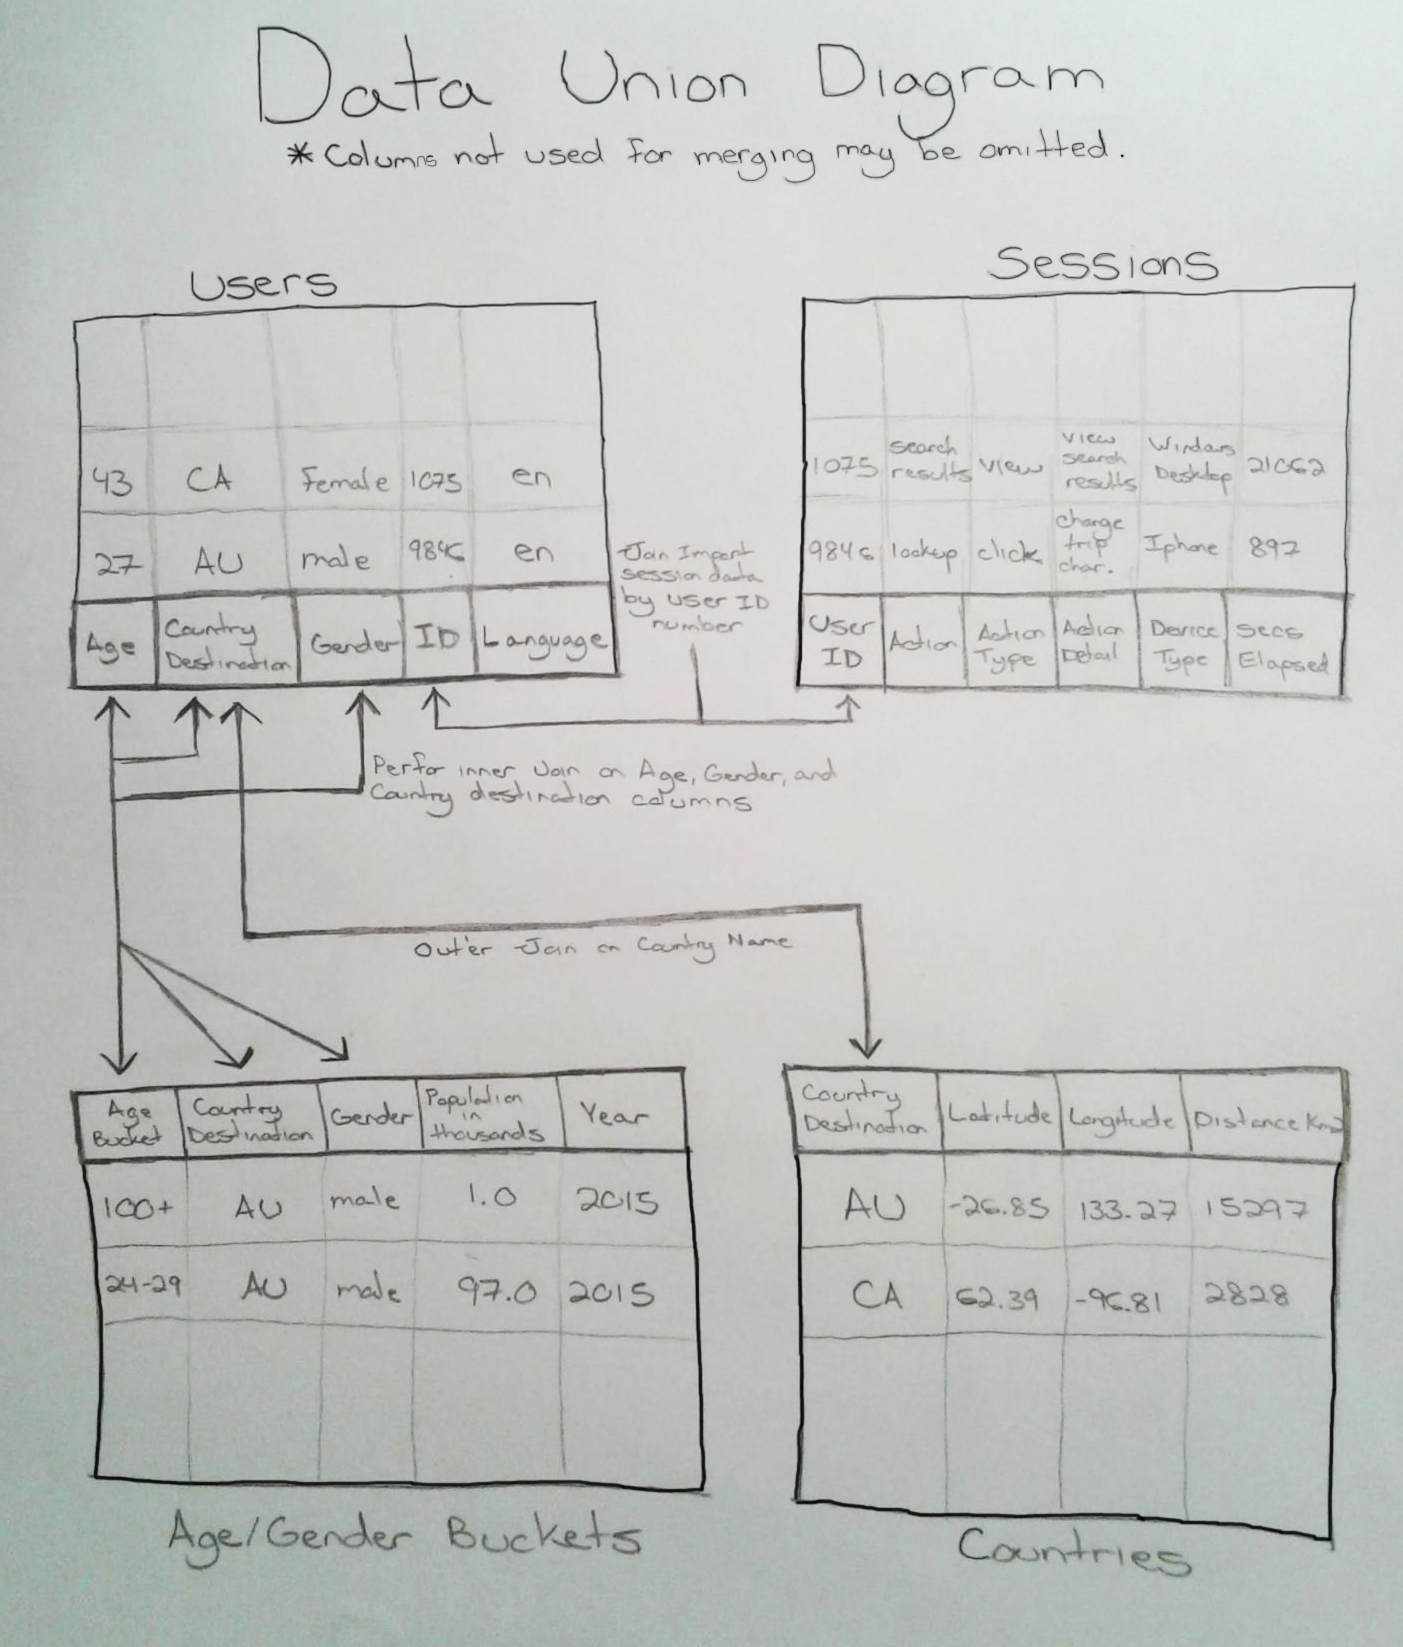 Data Union Diagram
* Columns not used for merging may be omitted.
Users
43 CA Female 1075 en
27 AU male 9846 en
Age Country Destination Gender ID Language
Sessions
1075 search results view view search results Windows Desktop 21062
9846 lookup click change trip char. Iphone 897
User ID Action Action Type Action Detail Device Type Secs Elapsed
Join Import
session data
by user ID
number
Perfor inner Join on Age, Gender, and
Country destination columns
Outer Join on Country Name
Age Bucket Country Destination Gender Population in thousands Year
100+ AU male 1.0 2015
24-29 AU male 97.0 2015
Age/Gender Buckets
Country Destination Latitude Longitude Distance Km2
AU -26.85 133.27 15297
CA 62.39 -96.81 2828
Countries